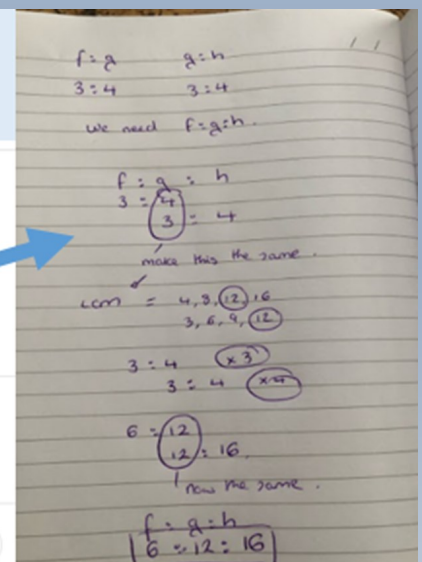 f:g g:h
3:4 3:4
we need f:g:h.
f : g : h
3 : 4
3 : 4
make this the same.
LCM = 4, 8, 12, 16
3, 6, 9, 12
3 : 4 ×3
3 : 4 ×4
6 : 12
12 : 16
now the same.
f : g : h
6 : 12 : 16